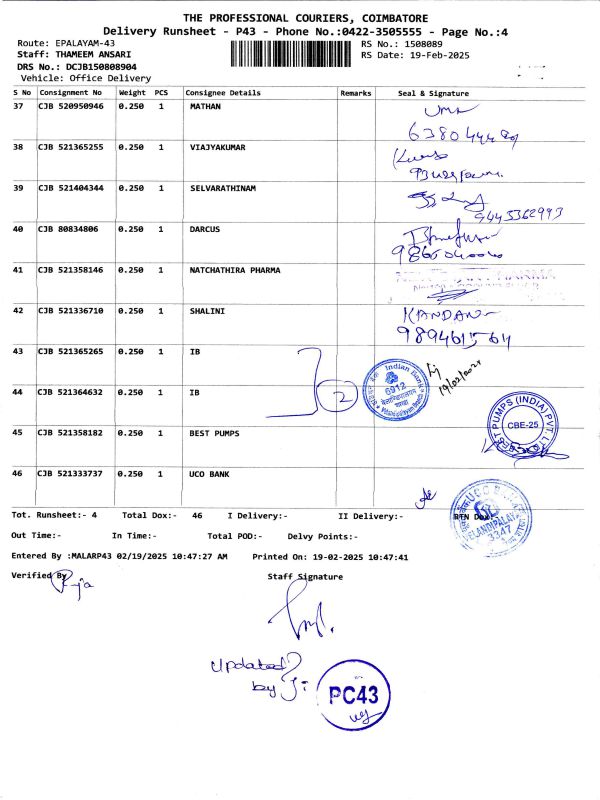 THE PROFESSIONAL COURIERS, COIMBATORE
Delivery Runsheet - P43 - Phone No.:0422-3505555 - Page No.:4
Route: EPALAYAM-43 RS No.: 1508089
Staff: THAMEEM ANSARI RS Date: 19-Feb-2025
DRS No.: DCJB150808904
Vehicle: Office Delivery
S No Consignment No Weight PCS Consignee Details Remarks Seal & Signature
37 CJB 520950946 0.250 1 MATHAN
38 CJB 521365255 0.250 1 VIAJYAKUMAR
39 CJB 521404344 0.250 1 SELVARATHINAM
9445362993
40 CJB 80834806 0.250 1 DARCUS
41 CJB 521358146 0.250 1 NATCHATHIRA PHARMA
42 CJB 521336710 0.250 1 SHALINI KANDAN
43 CJB 521365265 0.250 1 IB
Indian Bank
6912
19/02/2025
44 CJB 521364632 0.250 1 IB 2
BEST PUMPS (INDIA) PVT. LTD.
CBE-25
45 CJB 521358182 0.250 1 BEST PUMPS
46 CJB 521333737 0.250 1 UCO BANK
UCO BANK
VELANDIPALAYAM
3347
Tot. Runsheet:- 4 Total Dox:- 46 I Delivery:- II Delivery:-
Out Time:- In Time:- Total POD:- Delvy Points:-
Entered By :MALARP43 02/19/2025 10:47:27 AM Printed On: 19-02-2025 10:47:41
Verified By Staff Signature
Updated
by
PC43